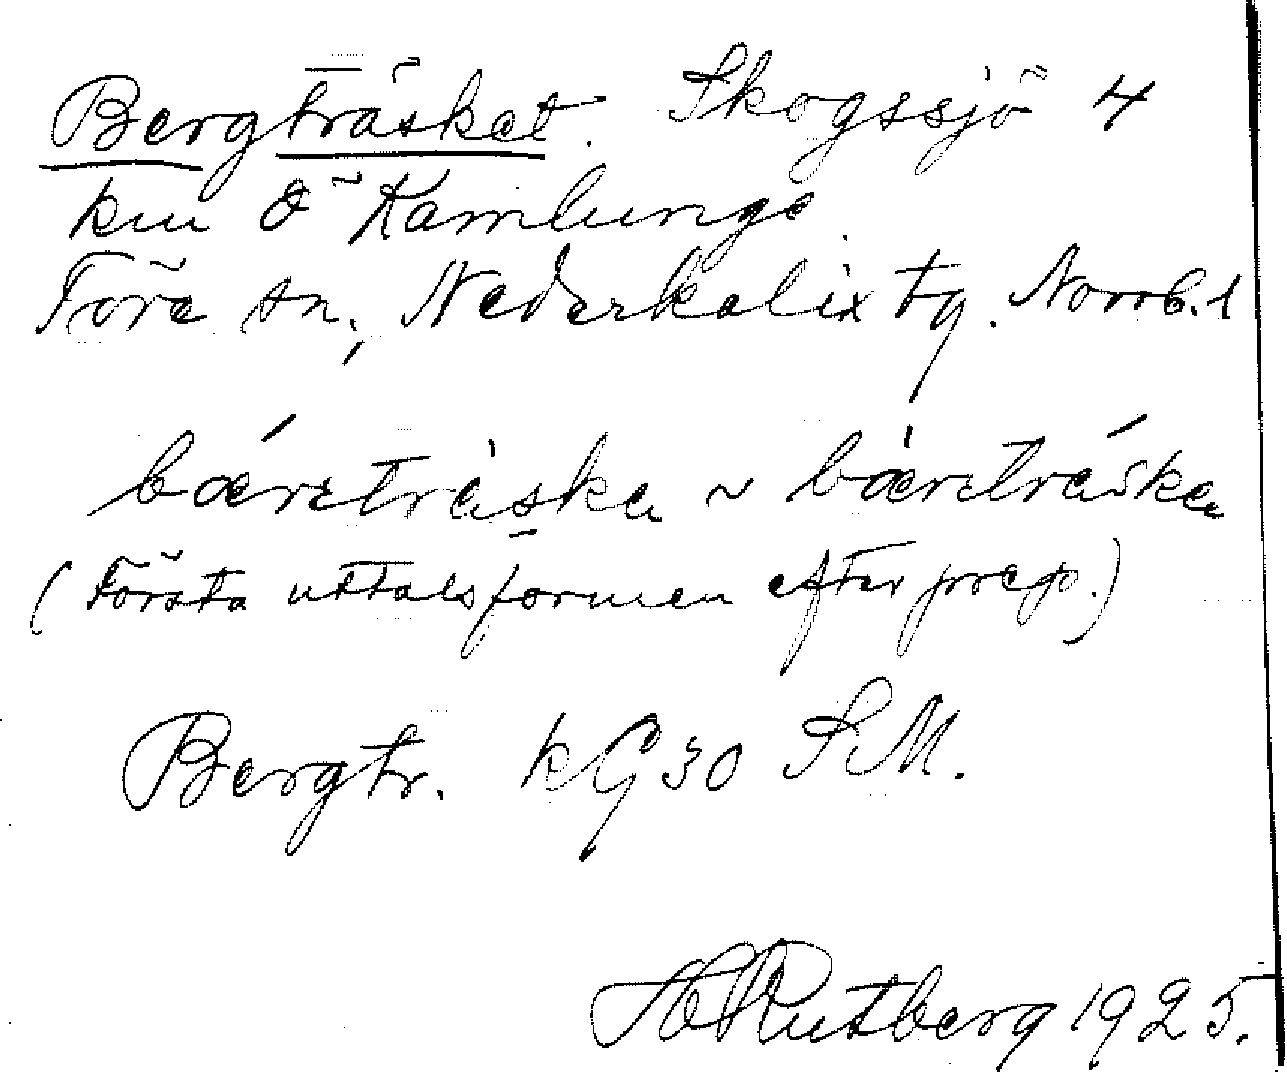 Bergträsket. Skogssjö 4
km Ö Kamlunge.
Töre sn, Nederkalix tg. Norrb. l
bæretràska ~ bæretráska
(Första uttalsformen efter prep.)
Bergtr. kG30 SM.
Rutberg 1925.